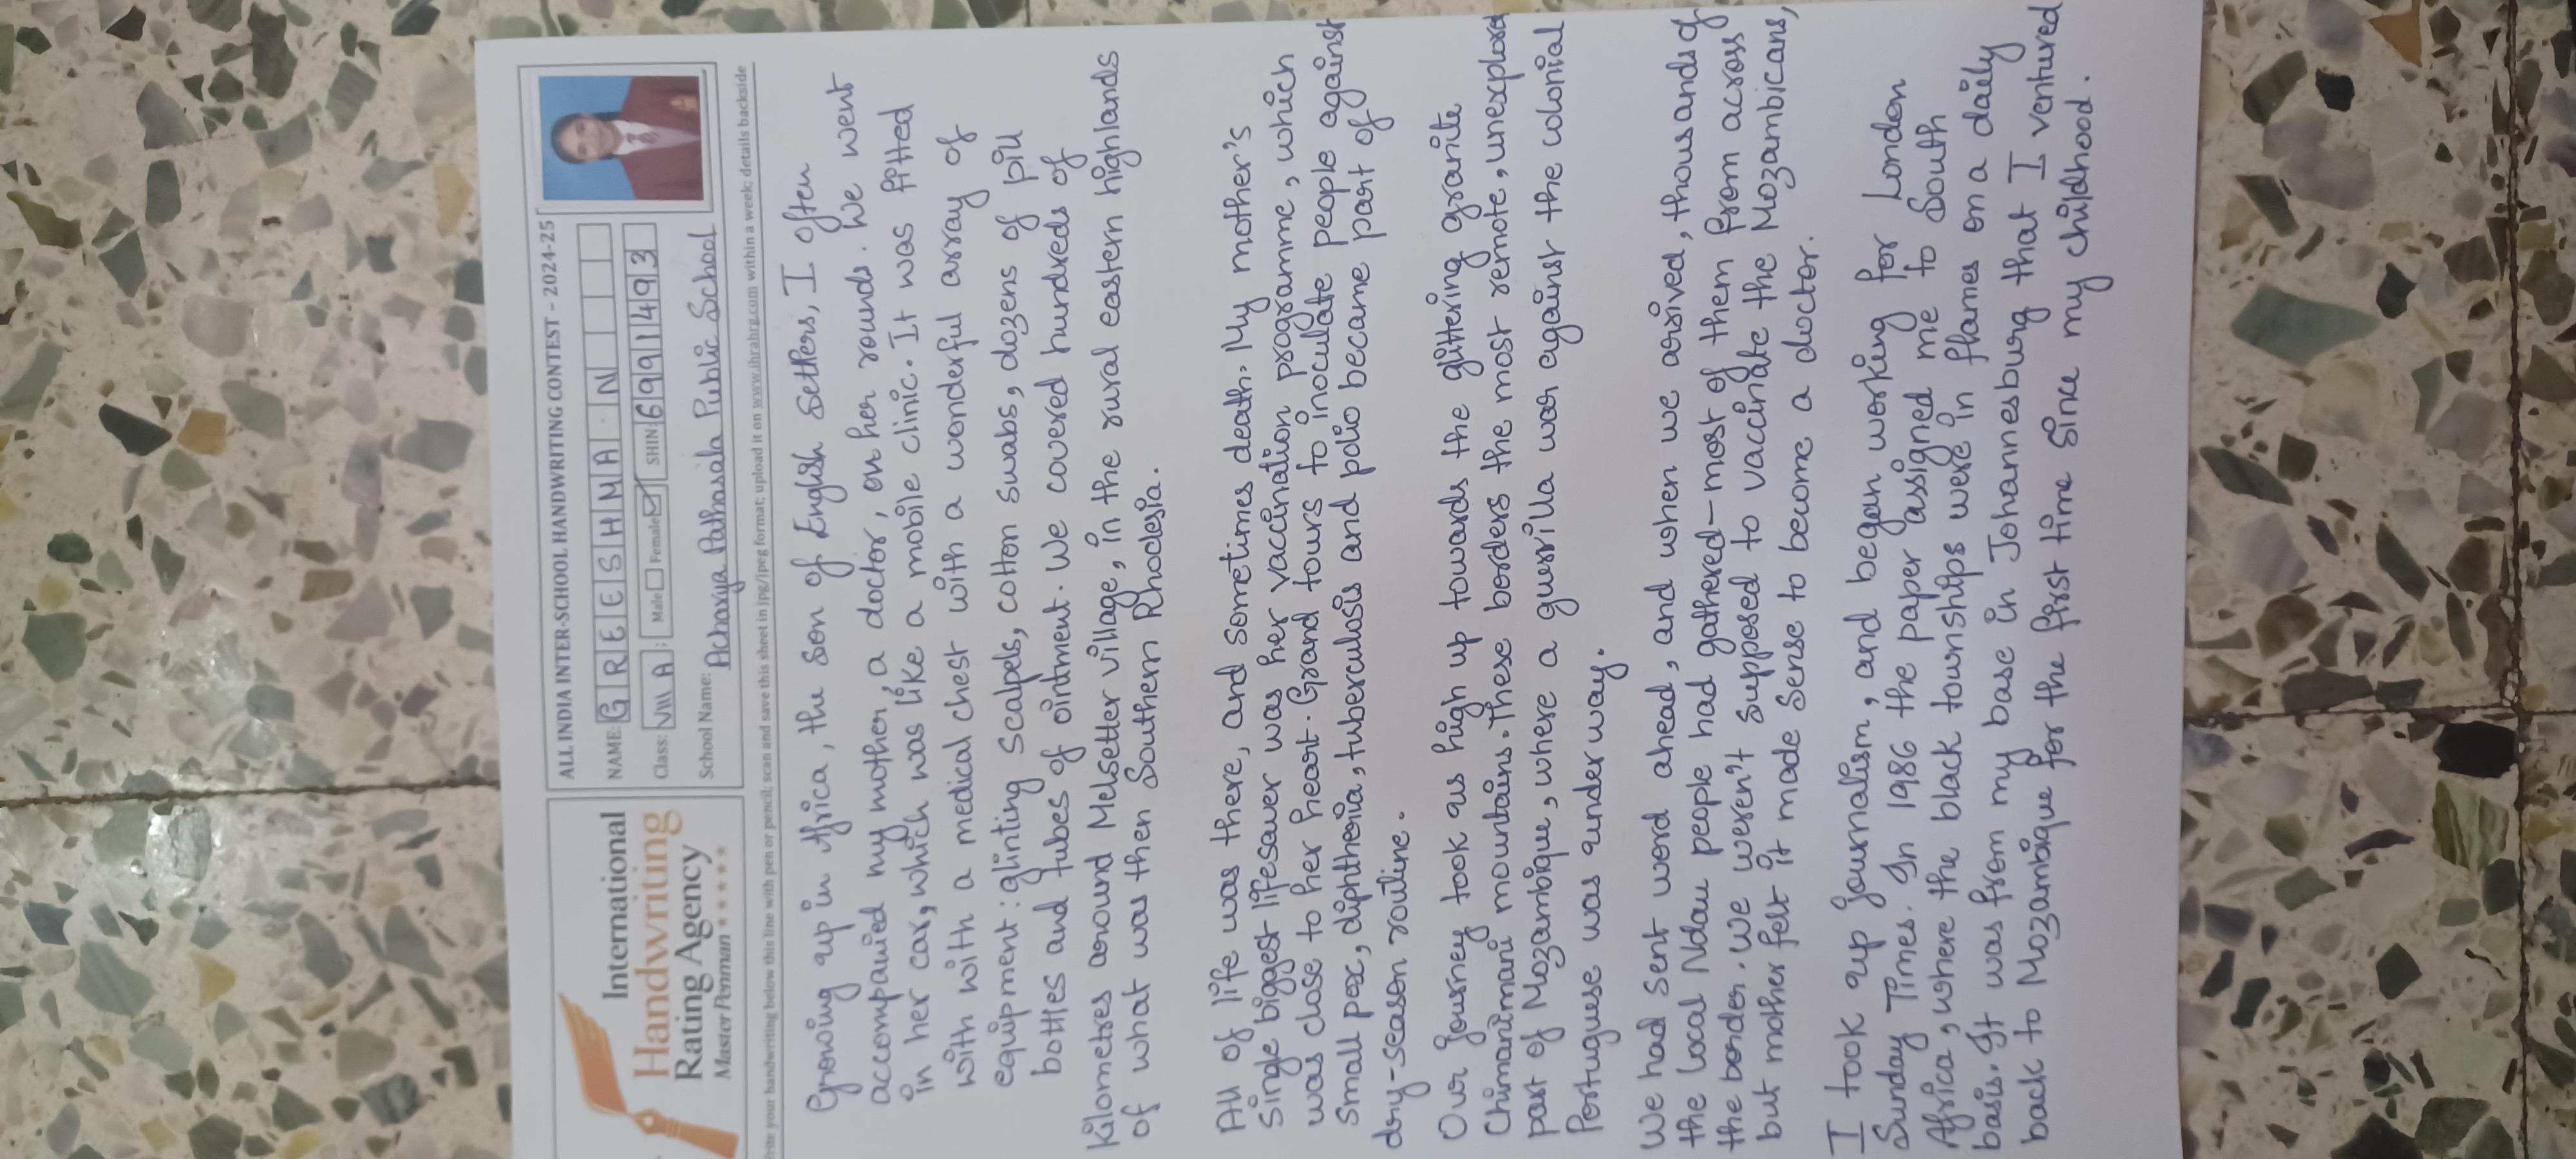 International
Handwriting
Rating Agency
Master Penman ★★★★★
ALL INDIA INTER-SCHOOL HANDWRITING CONTEST - 2024-25
NAME: GREESHMA . N
Class: VIII A : Male Female SHIN: 6991493
School Name: Acharya Pathasala Public School
your handwriting below this line with pen or pencil; scan and save this sheet in jpg/jpeg format; upload it on www.ihrahrg.com within a week; details backside
Growing up in Africa, the son of English settlers, I often
accompanied my mother, a doctor, on her rounds. We went
in her car, which was like a mobile clinic. It was fitted
with with a medical chest with a wonderful array of
equipment: glinting scalpels, cotton swabs, dozens of pill
bottles and tubes of ointment. We covered hundreds of
kilometres around Melsetter village, in the rural eastern highlands
of what was then Southern Rhodesia.
All of life was there, and sometimes death. My mother's
single biggest lifesaver was her vaccination programme, which
was close to her heart. Grand tours to inoculate people against
small pox, diphtheria, tuberculosis and polio became part of
dry-season routine.
Our journey took us high up towards the glittering granite
Chimanimani mountains. These borders the most remote, unexplored
part of Mozambique, where a guerrilla war against the colonial
Portuguese was under way.
We had sent word ahead, and when we arrived, thousands of
the local Ndau people had gathered - most of them from across
the border. We weren't supposed to vaccinate the Mozambicans,
but mother felt it made sense to become a doctor.
I took up journalism, and began working for London
Sunday Times. In 1986 the paper assigned me to South
Africa, where the black townships were in flames on a daily
basis. It was from my base in Johannesburg that I ventured
back to Mozambique for the first time since my childhood.